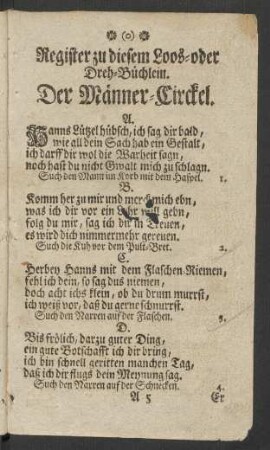 (o)
Register zu diesem Loos- oder
Dreh-Büchlein.
Der Männer-Circkel.
A.
Hanns Lützel hübsch, ich sag dir bald,
wie all dein Sach hab ein Gestalt,
ich darff dir wol die Warheit sagn,
noch hast du nicht Gwalt mich zu schlagn.
Such den Mann im Korb mit dem Haspel. 1.
B.
Komm her zu mir und merck mich ebn,
was ich dir vor ein Lehr will gebn,
folg du mir, sag ich dir in Treuen,
es wird dich nimmermehr gereuen.
Such die Kuh vor dem Pult-Bret. 2.
C.
Herbey Hanns mit dem Flaschen-Riemen,
fehl ich dein, so sag dus niemen,
doch acht ichs klein, ob du drum murrst,
ich weiß vor, daß du gerne schnurrst.
Such den Narren auf der Flaschen. 3.
D.
Bis frölich, darzu guter Ding,
ein gute Botschafft ich dir bring,
ich bin schnell geritten manchen Tag,
daß ich dir flugs dein Meynung sag.
Such den Narren auf der Schnecken. 4.
A 5 Er